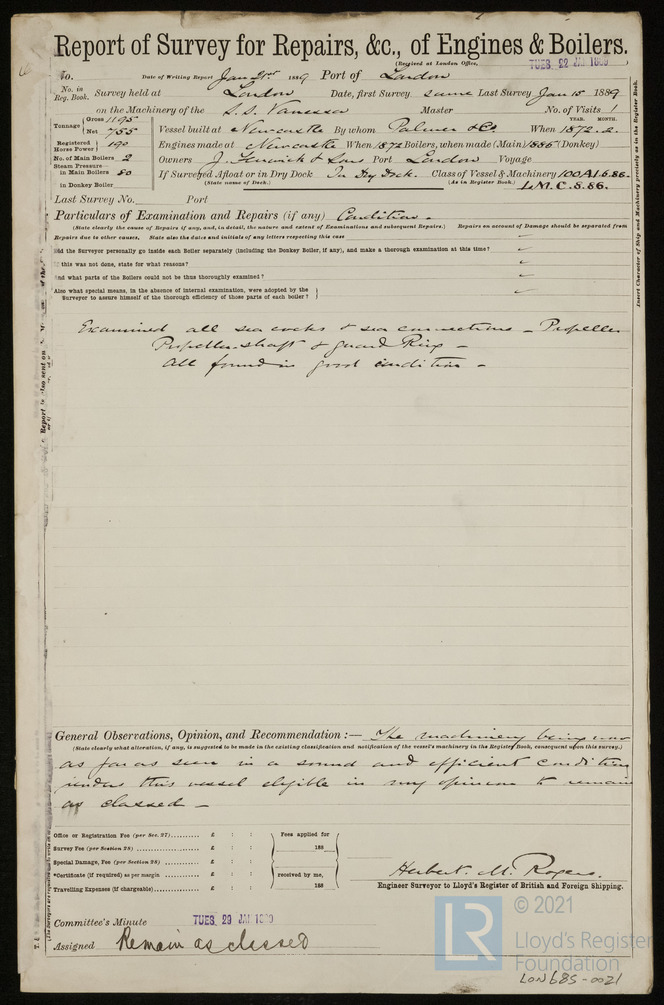 Report of Survey for Repairs, &c., of Engines & Boilers.
(Received at London Office, TUES. 22 JAN 1889
No. Date of Writing Report Jan 21st 1889 Port of London
No. in Reg. Book. Survey held at London Date, first Survey same Last Survey Jan 15 1889
on the Machinery of the S.S. Vanessa Master No. of Visits 1
Tonnage Gross 1195 Net 755
Vessel built at Newcastle By whom Palmer & Co. When YEAR. MONTH. 1872. 2.
Registered Horse Power 190
Engines made at Newcastle When 1872 Boilers, when made (Main) 1886 (Donkey)
No. of Main Boilers 2
Owners J. Fenwick & Sons Port London Voyage
Steam Pressure in Main Boilers 80
If Surveyed Afloat or in Dry Dock In Dry Dock. Class of Vessel & Machinery 100A1.6.86.
(State name of Dock.) (As in Register Book.) L.M.C.8.86.
in Donkey Boiler
Last Survey No. Port
Particulars of Examination and Repairs (if any) Condition.
(State clearly the cause of Repairs (if any, and, in detail, the nature and extent of Examinations and subsequent Repairs.) Repairs on account of Damage should be separated from
Repairs due to other causes, State also the dates and initials of any letters respecting this case
Did the Surveyor personally go inside each Boiler separately (including the Donkey Boiler, if any), and make a thorough examination at this time?
If this was not done, state for what reasons?
And what parts of the Boilers could not be thus thoroughly examined?
Also what special means, in the absence of internal examination, were adopted by the
Surveyor to assure himself of the thorough efficiency of those parts of each boiler?
Examined all sea cocks & sea connections - Propeller
Propeller shaft & guard Ring -
All found in good condition -
General Observations, Opinion, and Recommendation :— The machinery being now
(State clearly what alteration, if any, is suggested to be made in the existing classification and notification of the vessel's machinery in the Register Book, consequent upon this survey.)
as far as seen in a sound and efficient condition
renders this vessel eligible in my opinion to remain
as classed -
Office or Registration Fee (per Sec. 27).......... £ : : Fees applied for
Survey Fee (per Section 28) .......... £ : : 188
Special Damage, Fee (per Section 28) .......... £ : :
*Certificate (if required) as per margin .......... £ : : received by me,
Travelling Expenses (if chargeable).......... £ : : 188
Herbert. M. Rogers.
Engineer Surveyor to Lloyd's Register of British and Foreign Shipping.
Committee's Minute TUES. 29 JAN 1889
Assigned Remain as classed
Insert Character of Ship and Machinery precisely as in the Register Book.
LR
© 2021
Lloyd's Register
Foundation
LON685-0021